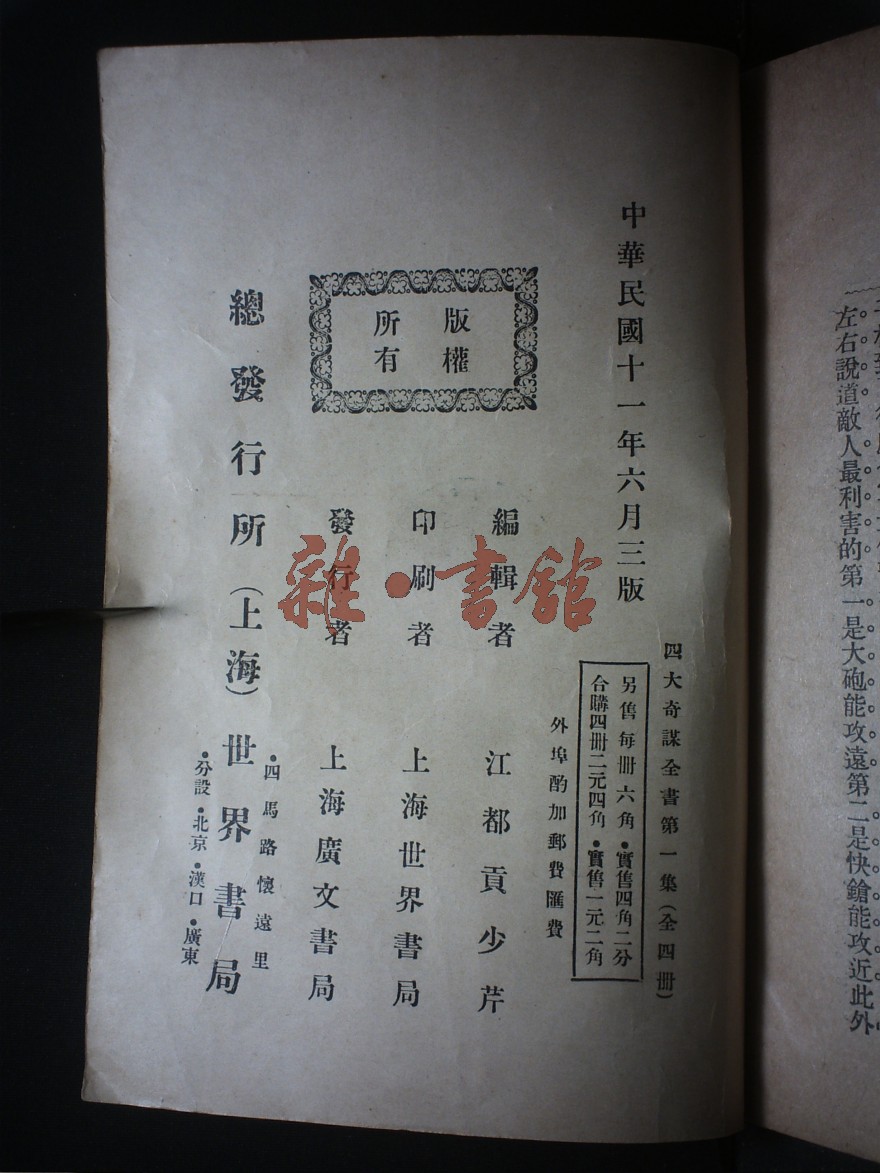 左右說道敵人最利害的第一是大砲能攻遠第二是快鎗能攻近此外
中華民國十一年六月三版
四大奇謀全書第一集(全四冊)
另售每冊六角•實售四角二分
合購四冊二元四角•實售一元二角
外埠酌加郵費匯費
版權
所有
編輯者 江都貢少芹
印刷者 上海世界書局
發行者 上海廣文書局
總發行所(上海)世界書局
•四馬路懷遠里
•分設•北京•漢口•廣東
雜•書館